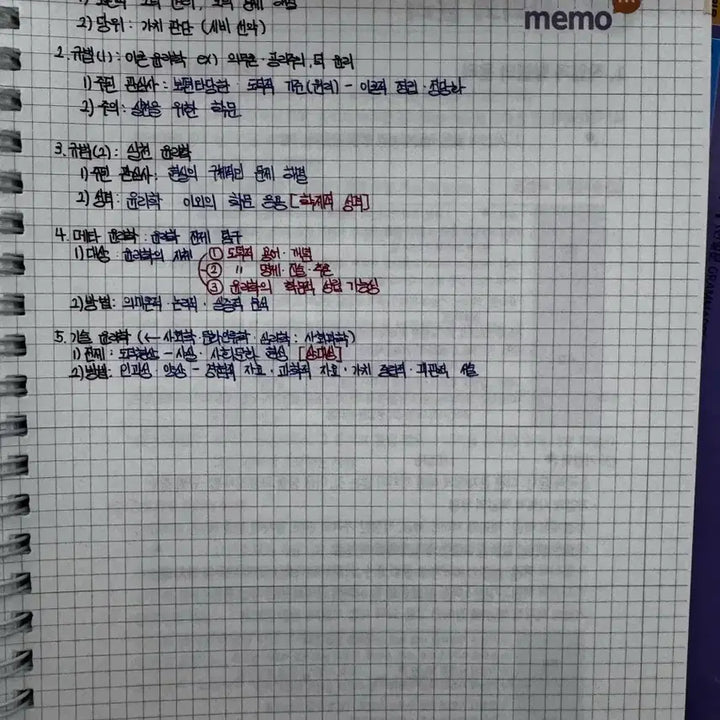 memo
2) 당위: 가치 판단 (시비 선악)
2. 규범(1): 이론 윤리학 ex) 의무론·공리주의, 덕 윤리
1) 주된 관심사: 보편타당한 도덕적 기준(원리) - 이론적 정립·정당화
2) 주의: 실천을 위한 학문
3. 규범(2): 실천 윤리학
1) 주된 관심사: 현실의 구체적인 문제 해결
2) 성격: 윤리학 이외의 학문 응용 [학제적 성격]
4. 메타 윤리학: 윤리학 전제 탐구
1) 대상: 윤리학의 자체 ① 도덕적 용어·개념
② 〃 명제·진술·추론
③ 윤리학의 학문적 성립 가능성
2) 방법: 의미론적·논리적· 분석
5. 기술 윤리학 (← 사회학·문화인류학·심리학: 사회과학)
1) 전제: 도덕현상 - 사실·사회문화 현상 [상대성]
2) 방법: 인과성·양상 - 경험적 자료·과학적 자료·가치 중립적·객관적 서술